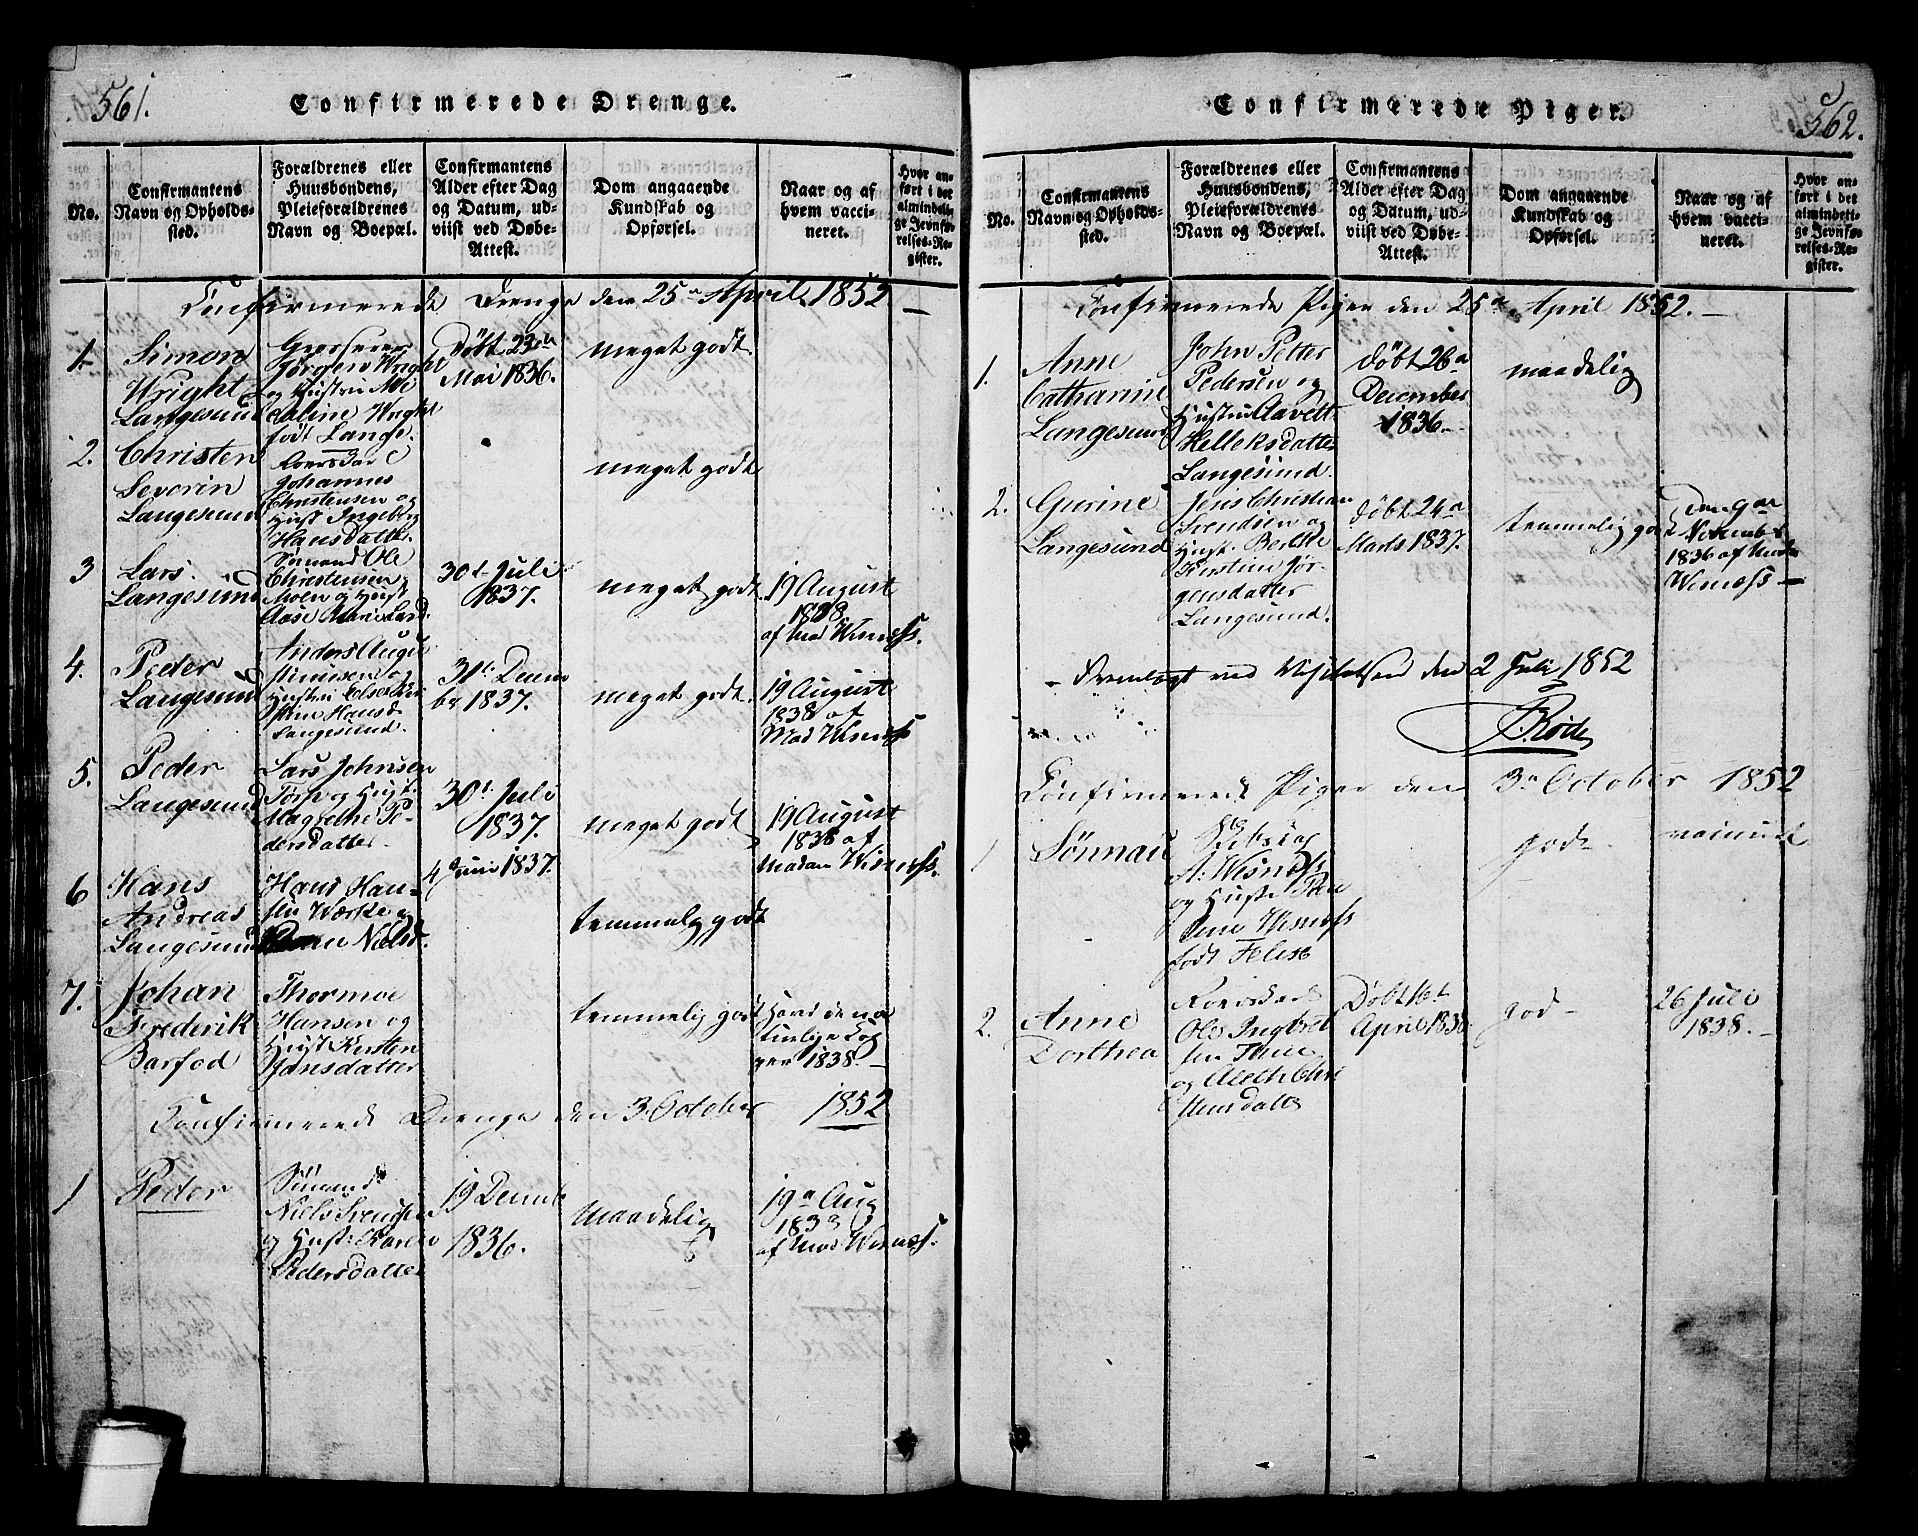 561.
Confirmerede Drenge.
No.
Confirmantens
Navn og Opholds-
sted.
Forældrenes eller
Huusbondens,
Pleieforældrenes
Navn og Boepæl.
Confirmantens
Alder efter Dag
og Datum, ud-
viist ved Døbe-
Attest.
Dom angaaende
Kundskab og
Opførsel.
Naar og af
hvem vacci-
neret.
Hvor an-
ført i det
almindeli-
ge Jevnfø-
relses-Re-
gister.
Confirmerede Drenge den 25de April 1852 –
1.
Simon
Wright
Langesund
Grosserer
Jørgen Wright
og Hustru
Wright
født Lange.
Døbt 23
Mai 1836.
meget godt
2.
Christen
Severin
Langesund
Johannes
Christensen og
Hust Ingeborg
Hansdatter.
meget godt
3
Lars
Langesund
Sømand Ole
Christensen
Moen og Hust
Aase Marie Lard.
30t Juli
1837.
meget godt
19 August
1838
af Mad Wisness.
4.
Peder
Langesund
Anders
og
Hustru
Hansd
Langesund.
31t Decem
ber 1837.
meget godt.
19 August
1838 af
Mad Wisness
5.
Peder
Langesund
Lars Johnsen
Torp og Hust.
Magrethe Pe-
dersdatter.
30t Juli
1837.
meget godt
19 August
1838 af
Madam Wisness.
6
Hans
Andreas
Langesund
Hans Han-
sen Værke og
Nielsd.
4 Juni 1837.
temmelig godt
7.
Johan
Frederik
Barfod
Thormoe
Hansen og
Hust Kirsten
Jansdatter
temmelig godt
Havd de na
turlige Kop
per 1838. –
Confirmerede Drenge den 3 October 1852
1
Peder
Sømand
Niels Svendsen
og Hust: Karen
Pedersdatter
19 Decemb
1836.
maadelig
19de Aug
1838
af Mad Wisness.
562.
Confirmerede Piger.
No.
Confirmantens
Navn og Opholds-
sted.
Forældrenes eller
Huusbondens,
Pleieforældrenes
Navn og Boepæl.
Confirmantens
Alder efter Dag
og Datum, ud-
viist ved Døbe-
Attest.
Dom angaaende
Kundskab og
Opførsel.
Naar og af
hvem vacci-
neret.
Hvor an-
ført i det
almindeli-
ge Jevnfø-
relses-Re-
gister.
Confirmerede Piger den 25de April 1852. –
1.
Anne
Catharine
Langesund
John Petter
Pedersen og
Hustru Aavelt
Helleksdatter
Langesund.
døbt 26de
December
1836.
maadelig
2.
Gurine
Langesund
Jens Christian
Svendsen og
Hust. Berthe
Kirstine Jør-
gensdatter
Langesund.
døbt 24de
Marts 1837.
temmelig godt
Den 9de
November
1836 af
Wisness –
Fremlagt ved Visitatsen den 2 Juli 1852
Confirmerede Piger den 3de October 1852
1
Sønnau
A. Wisness
og Hustr
Wisness
født
god.
vaccineret
2.
Anne
Dorthea
Ole Ingebret
sen
og
Døbt 16t
April
god –
26 Juli
1838. –